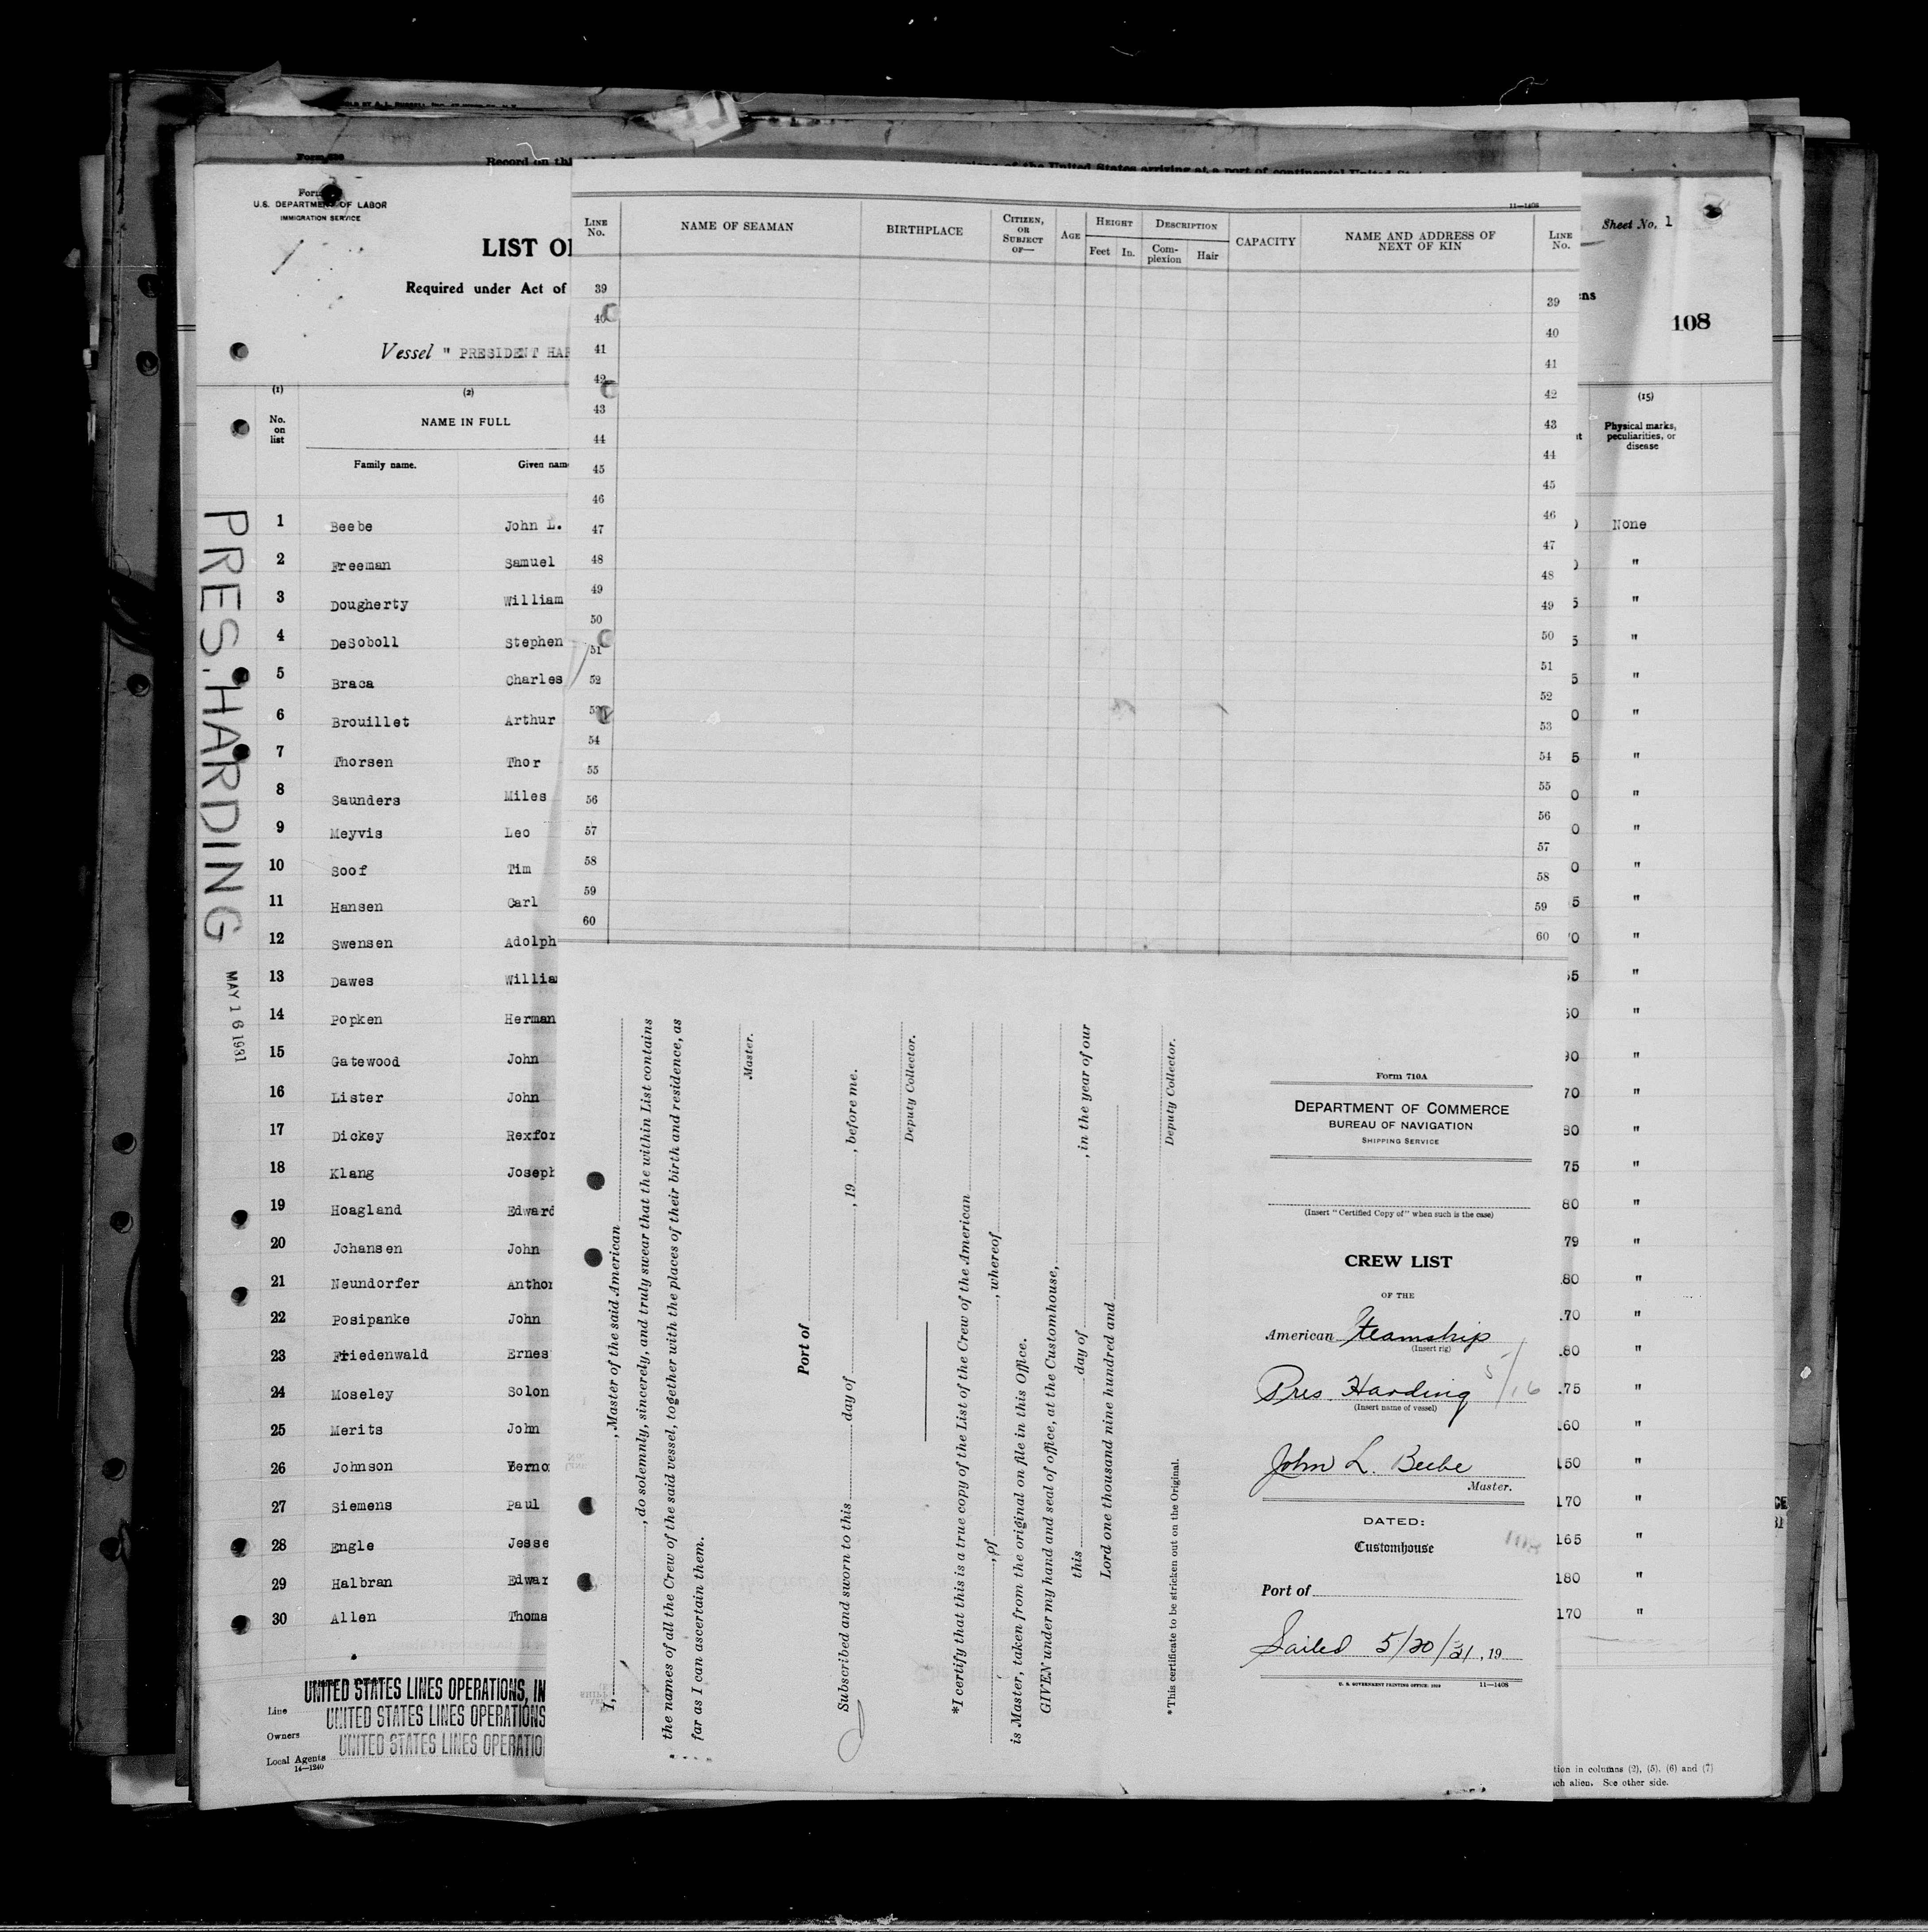 Form 630
Record on thi
of the United States arriving at a port of continental United
Form
U.S. DEPARTMENT OF LABOR
IMMIGRATION SERVICE
LIST OF
Required under Act of
Vessel " PRESIDENT HAR
(1)
(2)
No. on list
NAME IN FULL
Family name.
Given name
1 Beebe John L.
2 Freeman Samuel
3 Dougherty William
4 DeSoboll Stephen
5 Braca Charles
6 Brouillet Arthur
7 Thorsen Thor
8 Saunders Miles
9 Meyvis Leo
10 Soof Tim
11 Hansen Carl
12 Swensen Adolph
13 Dawes Willia
14 Popken Herman
15 Gatewood John
16 Lister John
17 Dickey Rexfor
18 Klang Joseph
19 Hoagland Edward
20 Johansen John
21 Neundorfer Anthon
22 Posipanke John
23 Friedenwald Ernes
24 Moseley Solon
25 Merits John
26 Johnson Verno
27 Siemens Paul
28 Engle Jesse
29 Halbran Edwar
30 Allen Thoma
PRES. HARDING
MAY 16 1931
Line UNITED STATES LINES OPERATIONS, IN
Owners UNITED STATES LINES OPERATIONS
Local Agents UNITED STATES LINES OPERATIO
14—1240
11—1408
LINE No.
NAME OF SEAMAN
BIRTHPLACE
CITIZEN, OR SUBJECT OF—
AGE
HEIGHT
Feet In.
DESCRIPTION
Complexion Hair
CAPACITY
NAME AND ADDRESS OF NEXT OF KIN
LINE No.
39 39
40 40
41 41
42 42
43 43
44 44
45 45
46 46
47 47
48 48
49 49
50 50
51 51
52 52
53 53
54 54
55 55
56 56
57 57
58 58
59 59
60 60
I, , Master of the said American
, do solemnly, sincerely, and truly swear that the within List contains
the names of all the Crew of the said vessel, together with the places of their birth and residence, as
far as I can ascertain them.
Master.
Port of
Subscribed and sworn to this day of , 19 , before me.
Deputy Collector.
*I certify that this is a true copy of the List of the Crew of the American
, of , whereof
is Master, taken from the original on file in this Office.
GIVEN under my hand and seal of office, at the Customhouse,
this day of , in the year of our
Lord one thousand nine hundred and
Deputy Collector.
*This certificate to be stricken out on the Original.
Form 710A
DEPARTMENT OF COMMERCE
BUREAU OF NAVIGATION
SHIPPING SERVICE
(Insert "Certified Copy of" when such is the case)
CREW LIST
OF THE
American Steamship
(Insert rig)
Pres. Harding 5/16
(Insert name of vessel)
John L. Beebe
Master.
DATED:
Customhouse
Port of
Sailed 5/20/31, 19
U. S. GOVERNMENT PRINTING OFFICE 11—1408
Sheet No. 1
ens
108
(15)
Physical marks, peculiarities, or disease
None
"
"
5 "
5 "
0 "
5 "
0 "
0 "
0 "
5 "
0 "
5 "
50 "
90 "
70 "
80 "
75 "
80 "
79 "
80 "
70 "
80 "
75 "
60 "
150 "
170 "
165 "
180 "
170 "
tion in columns (2), (5), (6) and (7)
ach alien. See other side.